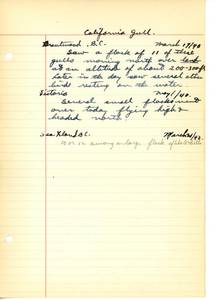 California Gull.
Brentwood, B.C. March 17/40
Saw a flock of 11 of these
gulls moving north over
at an altitude of about 200-300 ft
Later in the day saw several other
birds resting on the water
Victoria May 1/40.
Several small flocks went
over today flying high &
headed north.
Sea Island B.C. March
10 or so among a large flock of